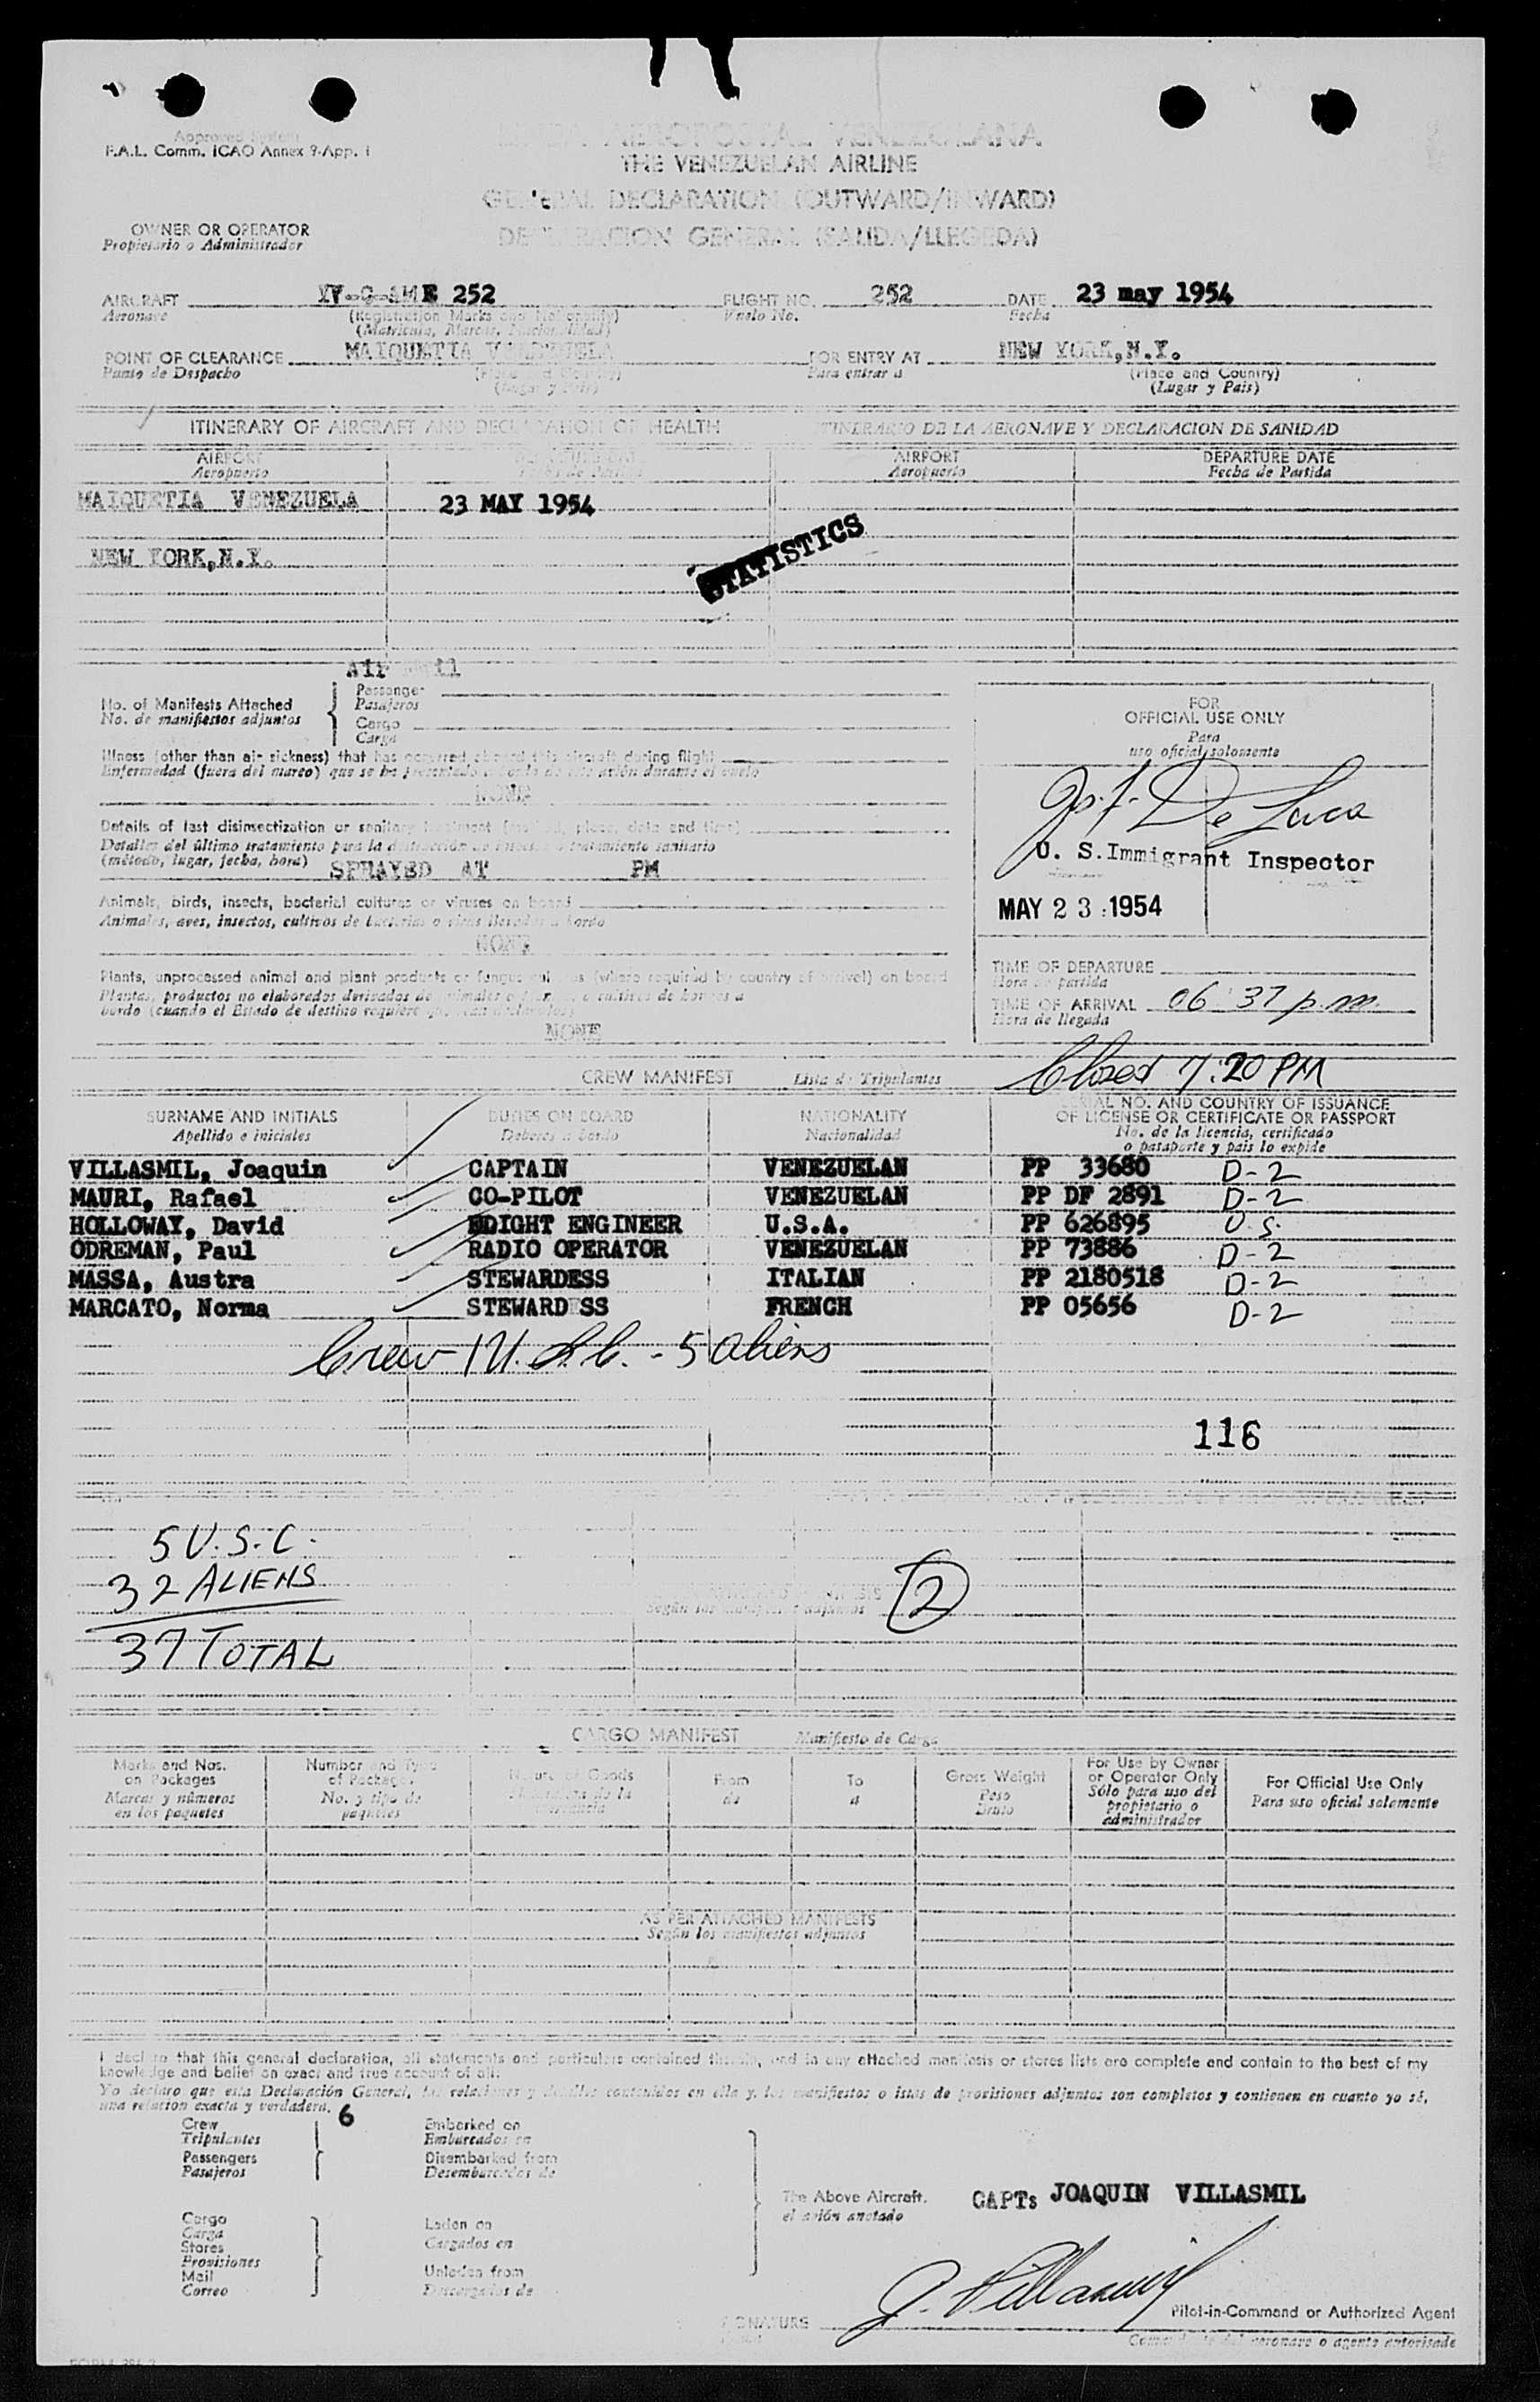 Approved System
F.A.L. Comm. ICAO Annex 9-App. 1
AEROPOSTAL VENEZOLANA
THE VENEZUELAN AIRLINE
GENERAL DECLARATION (OUTWARD/INWARD)
DECLARACION GENERAL (SALIDA/LLEGEDA)
OWNER OR OPERATOR
Propietario o Administrador
AIRCRAFT YV-C-AME 252 FLIGHT NO. 252 DATE 23 may 1954
Aeronave (Registration Marks and Nationality) Vuelo No. Fecha
(Matricula, Marcas, Nacionalidad)
POINT OF CLEARANCE MAIQUETIA VENEZUELA FOR ENTRY AT NEW YORK,N.Y.
Punto de Despacho (Place and Country) Para entrar a (Place and Country)
(Lugar y Pais) (Lugar y Pais)
ITINERARY OF AIRCRAFT AND DECLARATION OF HEALTH ITINERARIO DE LA AERONAVE Y DECLARACION DE SANIDAD
AIRPORT AIRPORT DEPARTURE DATE
Aeropuerto Fecha de Partida Aeropuerto Fecha de Partida
MAIQUETIA VENEZUELA 23 MAY 1954
STATISTICS
NEW YORK,N.Y.
Air Mail
No. of Manifests Attached Passenger
No. de manifiestos adjuntos Pasajeros
Cargo
Carga
FOR
OFFICIAL USE ONLY
Para
uso oficial solamente
Illness (other than air sickness) that has occurred aboard this aircraft during flight
Enfermedad (fuera del mareo) que se ha presentado a bordo de este avión durante el vuelo
NONE
Details of last disinsectization or sanitary treatment (method, place, date and time)
Detalles del último tratamiento para la destrucción de insectos o tratamiento sanitario
(método, lugar, fecha, hora) SPRAYED AT PM
Jos. F. De Luca
U. S. Immigrant Inspector
MAY 23 1954
Animals, birds, insects, bacterial cultures or viruses on board
Animales, aves, insectos, cultivos de bacterias o virus llevados a bordo
NONE
Plants, unprocessed animal and plant products or fungus cultures (where required by country of arrival) on board
Plantas, productos no elaborados derivados de animales o
bordo (cuando el Estado de destino requiere
NONE
TIME OF DEPARTURE
Hora de partida
TIME OF ARRIVAL 06:37 p.m.
Hora de llegada
Closed 7:20 PM
CREW MANIFEST Lista de Tripulantes
SURNAME AND INITIALS DUTIES ON BOARD NATIONALITY SERIAL NO. AND COUNTRY OF ISSUANCE
OF LICENSE OR CERTIFICATE OR PASSPORT
Apellido e iniciales Deberes a bordo Nacionalidad No. de la licencia, certificado
o pasaporte y pais lo expide
VILLASMIL, Joaquin CAPTAIN VENEZUELAN PP 33680 D-2
MAURI, Rafael CO-PILOT VENEZUELAN PP DF 2891 D-2
HOLLOWAY, David FLIGHT ENGINEER U.S.A. PP 626895 U.S.
ODREMAN, Paul RADIO OPERATOR VENEZUELAN PP 73886 D-2
MASSA, Austra STEWARDESS ITALIAN PP 2180518 D-2
MARCATO, Norma STEWARDESS FRENCH PP 05656 D-2
Crew 1 U.S.C. - 5 aliens
116
5 U.S.C.
32 ALIENS
37 TOTAL
Según los manifiestos adjuntos
2
CARGO MANIFEST Manifiesto de Carga
Marks and Nos. on Packages Number and Type of Packages Nature of Goods From To Gross Weight For Use by Owner or Operator Only For Official Use Only
Marcas y números en los paquetes No. y tipo de paquetes de a Peso Bruto Sólo para uso del propietario o administrador Para uso oficial solamente
AS PER ATTACHED MANIFESTS
Según los manifiestos adjuntos
I declare that this general declaration, all statements and particulars contained therein, and in any attached manifests or stores lists are complete and contain to the best of my
knowledge and belief an exact and true account of all:
Yo declaro que esta Declaración General, las relaciones y detalles contenidos en ella y, los manifiestos o listas de provisiones adjuntos son completos y contienen en cuanto yo sé,
una relación exacta y verdadera.
Crew 6 Embarked on
Tripulantes Embarcados en
Passengers Disembarked from
Pasajeros Desembarcados de
The Above Aircraft.
el avión anotado
CAPT: JOAQUIN VILLASMIL
Cargo Laden on
Carga Cargados en
Stores
Provisiones
Mail Unladen from
Correo Descargados de
J. Villasmil
SIGNATURE Pilot-in-Command or Authorized Agent
Comandante del aeronave o agente autorizado